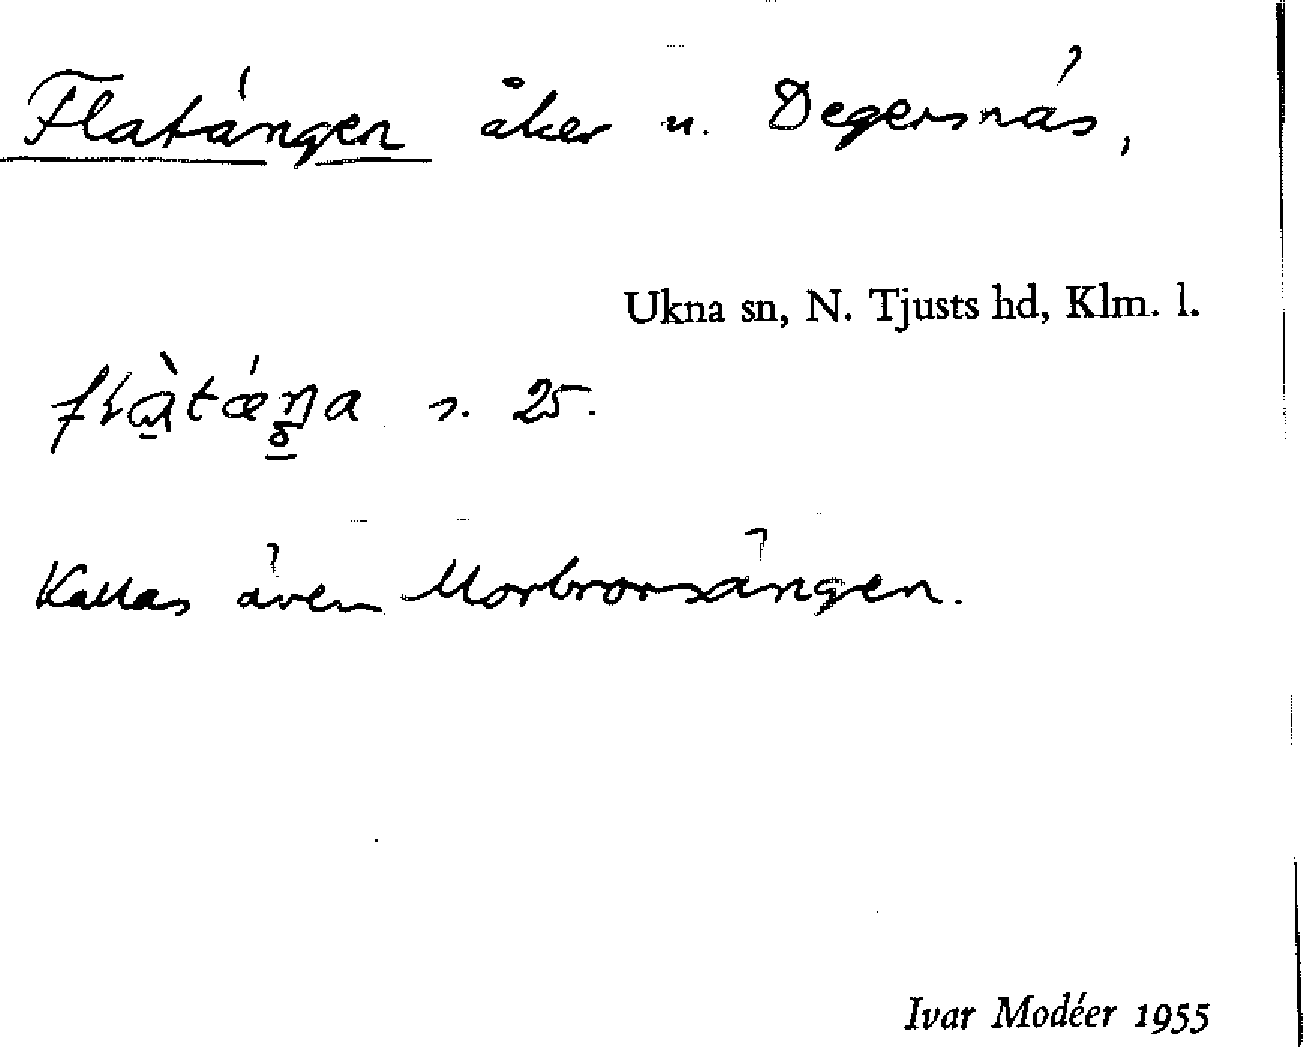 Flatängen åker u. Degersnäs,
Ukna sn, N. Tjusts hd, Klm. l.
s. 25.
Kallas även Morbrorsängen.
Ivar Modéer 1955